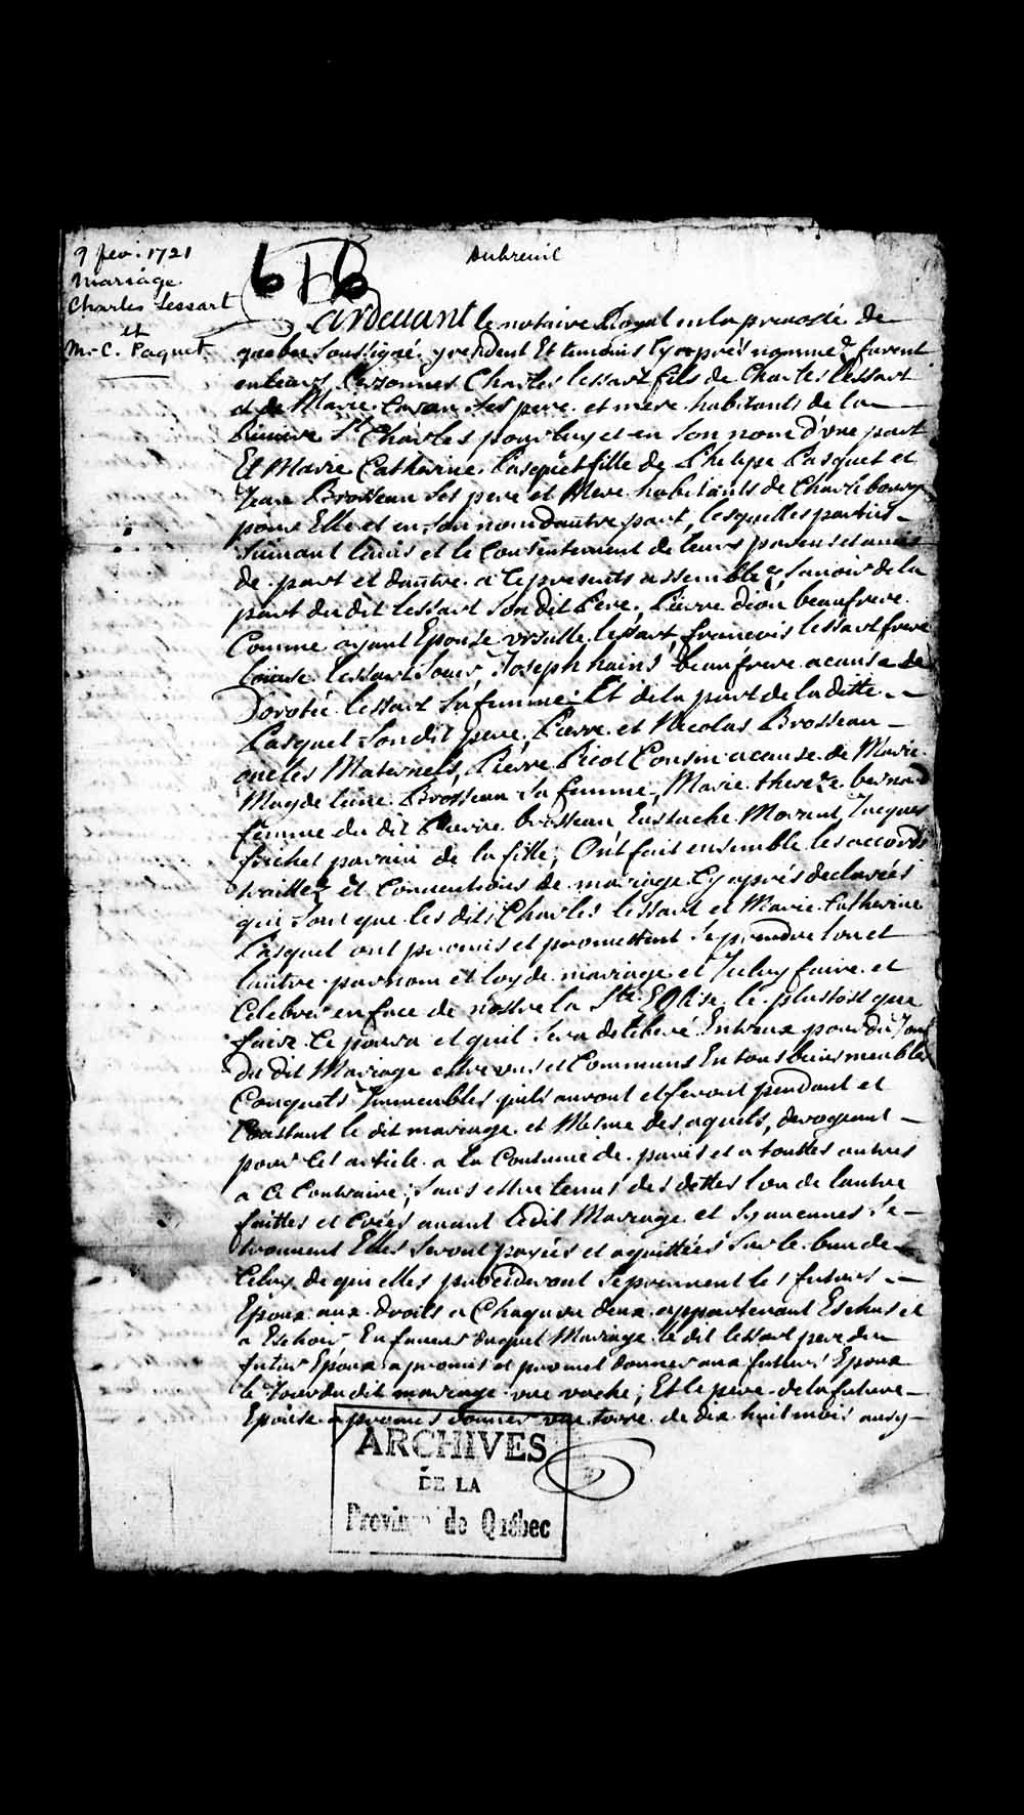 9 fev. 1721
Mariage
Charles Lessart
et
M.-C. Paquet
616
Dubreuil
Pardevant le notaire Royal en la prevosté de
quebec soussigné y resident Et temoins cy aprés nommez furent
en leurs Personnes Charles lessart fils de Charles lessart
et de Marie Caron ses pere et mere habitants de la
Riviere St Charles pour luy et en son nom d'une part
Et Marie Catherine Pasquet fille de Philippe Pasquet et
Jean Brosseau ses pere et Mere habitants de Charlebourg
pour Elle et en son nom dautre part, lesquelles parties
suivant lavis et le Consentement de leurs parens et amis
de part et dautre a ce presents assemblez, savoir de la
part du dit lessart son dit Pere, Pierre dion beaufrere
Comme ayant Epousé Ursulle lessart, francois lessart frere
Louise lessart soeur, Joseph hains beaufrere a cause de
Dorotée lessart sa femme; Et de la part de la ditte
Pasquet son dit pere, Pierre et Nicolas Brosseau
oncles Maternels, Pierre Picot Cousin a cause de Marie
Magdelaine Brosseau sa femme, Marie thereze bernard
femme du dit Pierre brosseau Eustache Morant, Jacques
frichet parain de la fille; Ont fait ensemble les accords
traittez et Conventions de mariage Cy aprés declarées
qui sont que les dits Charles lessart et Marie Catherine
Pasquet ont promis et promettent se prendre lun et
lautre par nom et loy de mariage et Iceluy faire et
Celebrer en face de nostre la Ste Eglise le plustost que
faire Ce poura et quil sera deliberé Entreux pour du Jour
du dit Mariage estre uns et Communs En tous biens meubles
Conquets Immeubles quils auront et feront pendant et
Constant le dit mariage et Mesme des aquets, derogeant
pour cet article a la Coutume de paris et a touttes autres
a ce Contraire; sans estre tenus des dettes lun de lautre
faittes et Créés avant ledit Mariage et sy aucunes se
trouvent Elles seront payées et aquittées sur le bien de
Celuy de qui elles procederont se prennent les futurs
Epoux aux droits a Chaqun deux appartenant Eschus et
a Eschoir En faveur duquel Mariage le dit lessart pere du
futur Epoux a promis et promet donner aux futurs Epoux
le Jour du dit mariage une vache; Et le pere de la future
Epouse a promis donner une torre de dix huit mois aussy
ARCHIVES
DE LA
Province de Québec